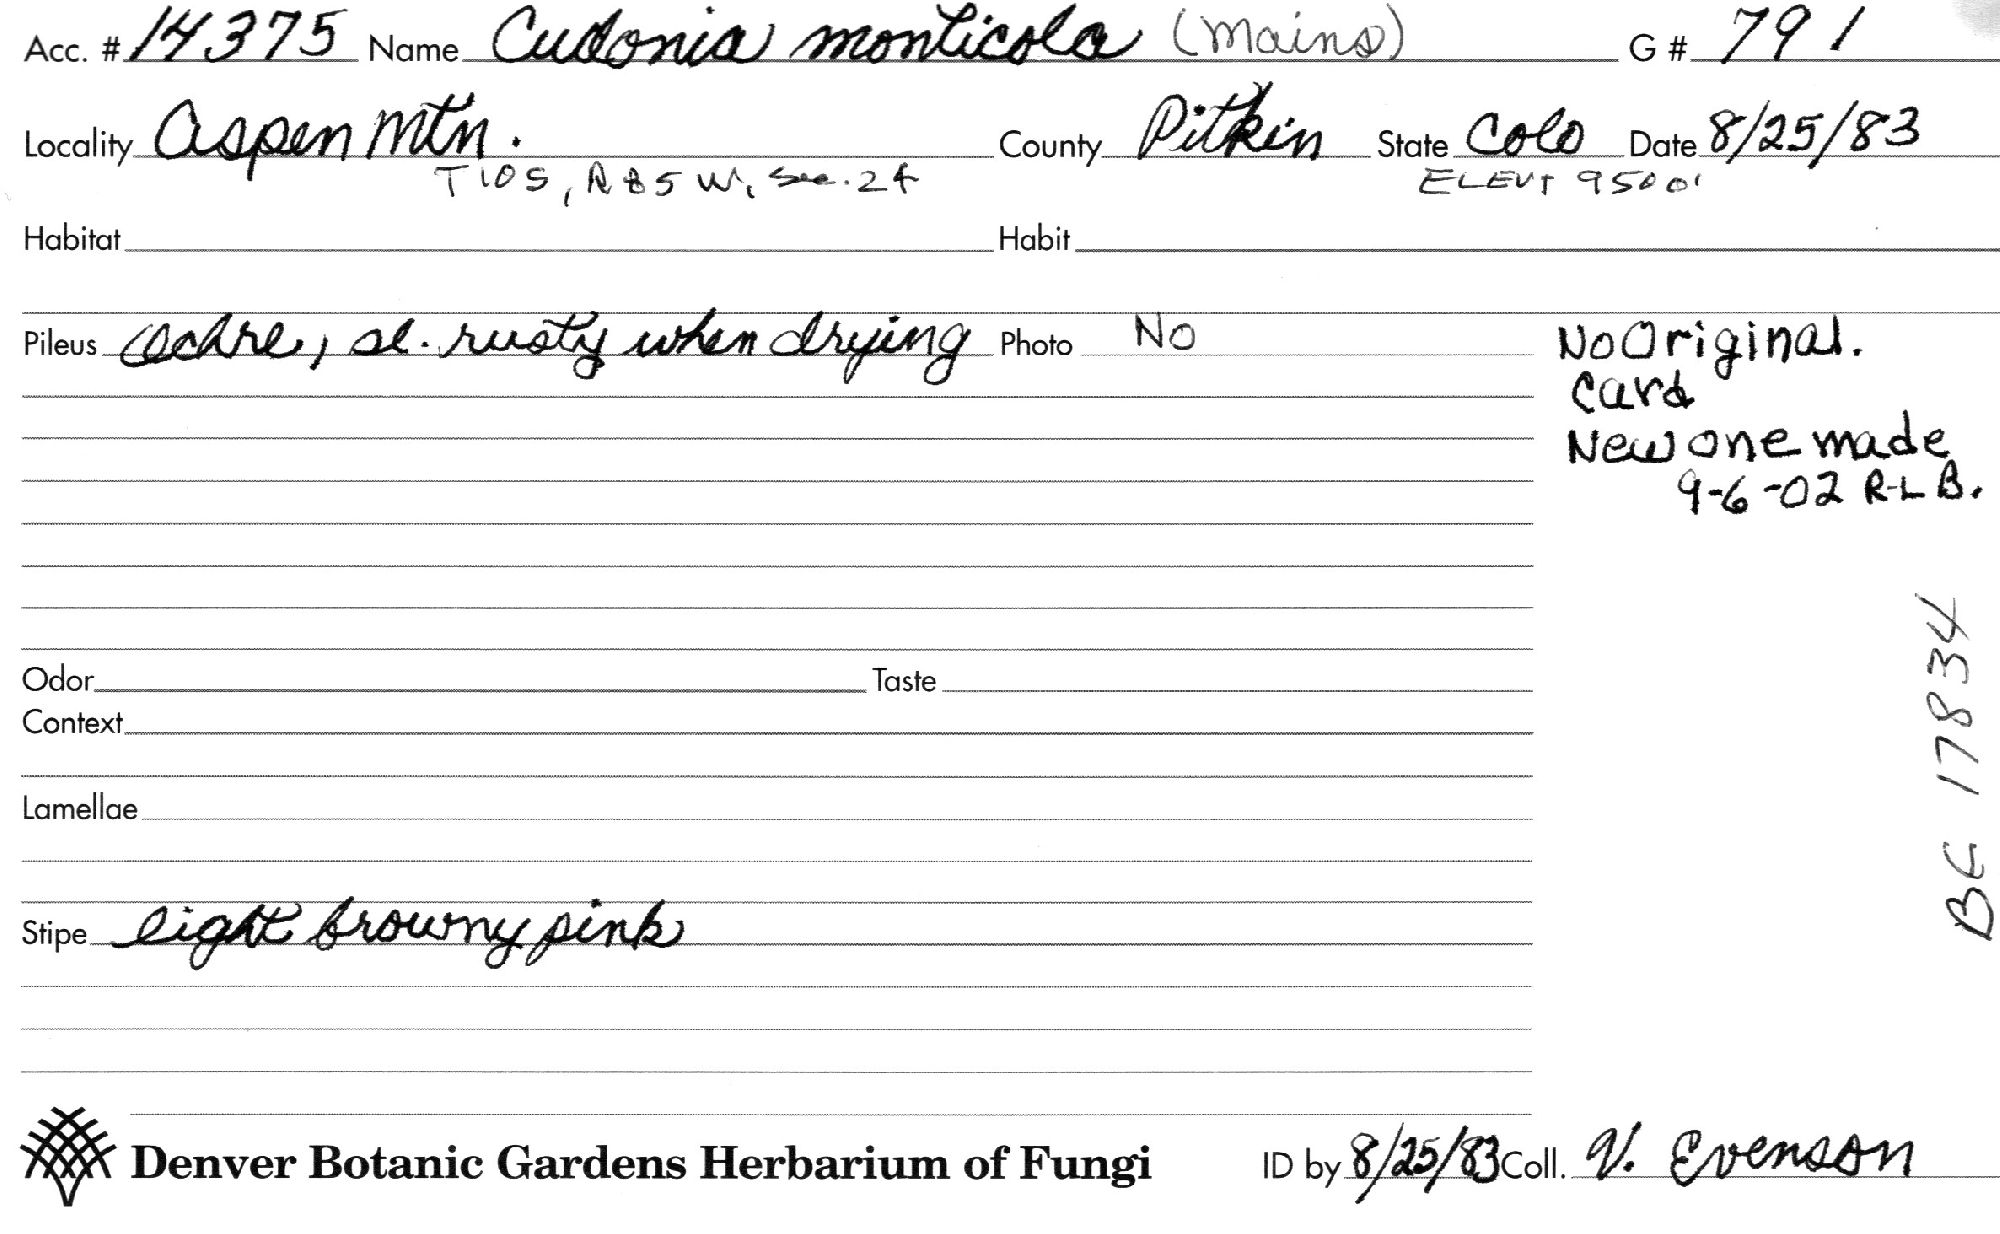 Acc. # 14375 Name Cudonia monticola (Mains) G # 791
Locality Aspen Mtn. County Pitkin State Colo Date 8/25/83
T10S, R85W, Sec. 24 ELEVT 9500'
Habitat Habit
Pileus ochre, sl. rusty when drying Photo No
No Original.
card
New one made
9-6-02 R-L B.
Odor Taste
Context
Lamellae
Stipe light browny pink
17834
Denver Botanic Gardens Herbarium of Fungi ID by 8/25/83 Coll. V. Evenson